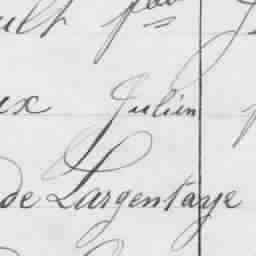 ult
ux Julien
de Largentaye